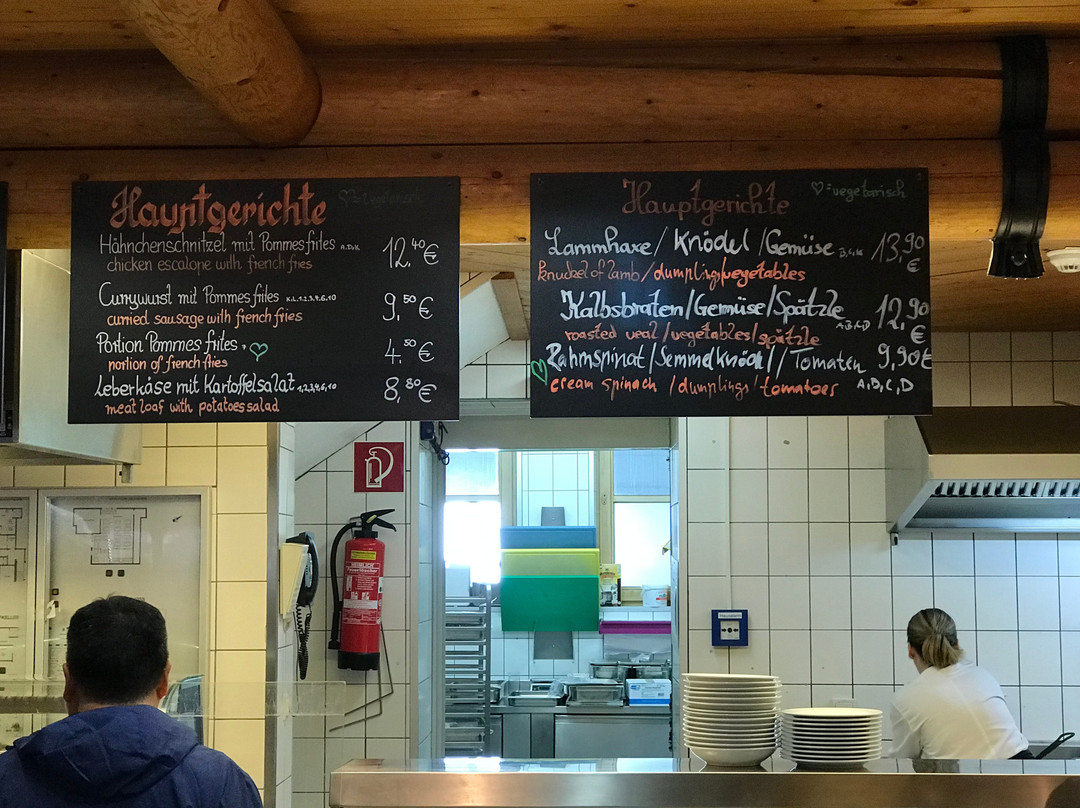 Hauptgerichte
Hähnchenschnitzel mit Pommes frites A,D,K 12,40 €
chicken escalope with french fries
Currywurst mit Pommes frites K,L,1,2,3,4,6,10 9,50 €
curried sausage with french fries
Portion Pommes frites ♡ 4,50 €
portion of french fries
Leberkäse mit Kartoffelsalat 1,2,3,4,6,10 8,80 €
meat loaf with potatoes salad
Hauptgerichte ♡=vegetarisch
Lammhaxe / Knödel / Gemüse 13,90 €
knuckel of lamb / dumpling/vegetables
Kalbsbraten/Gemüse/Spätzle 12,90 €
roasted veal / vegetables / spätzle
♡ Rahmspinat / Semmelknödel // Tomaten 9,90 €
cream spinach / dumplings / tomatoes A,D,C,D